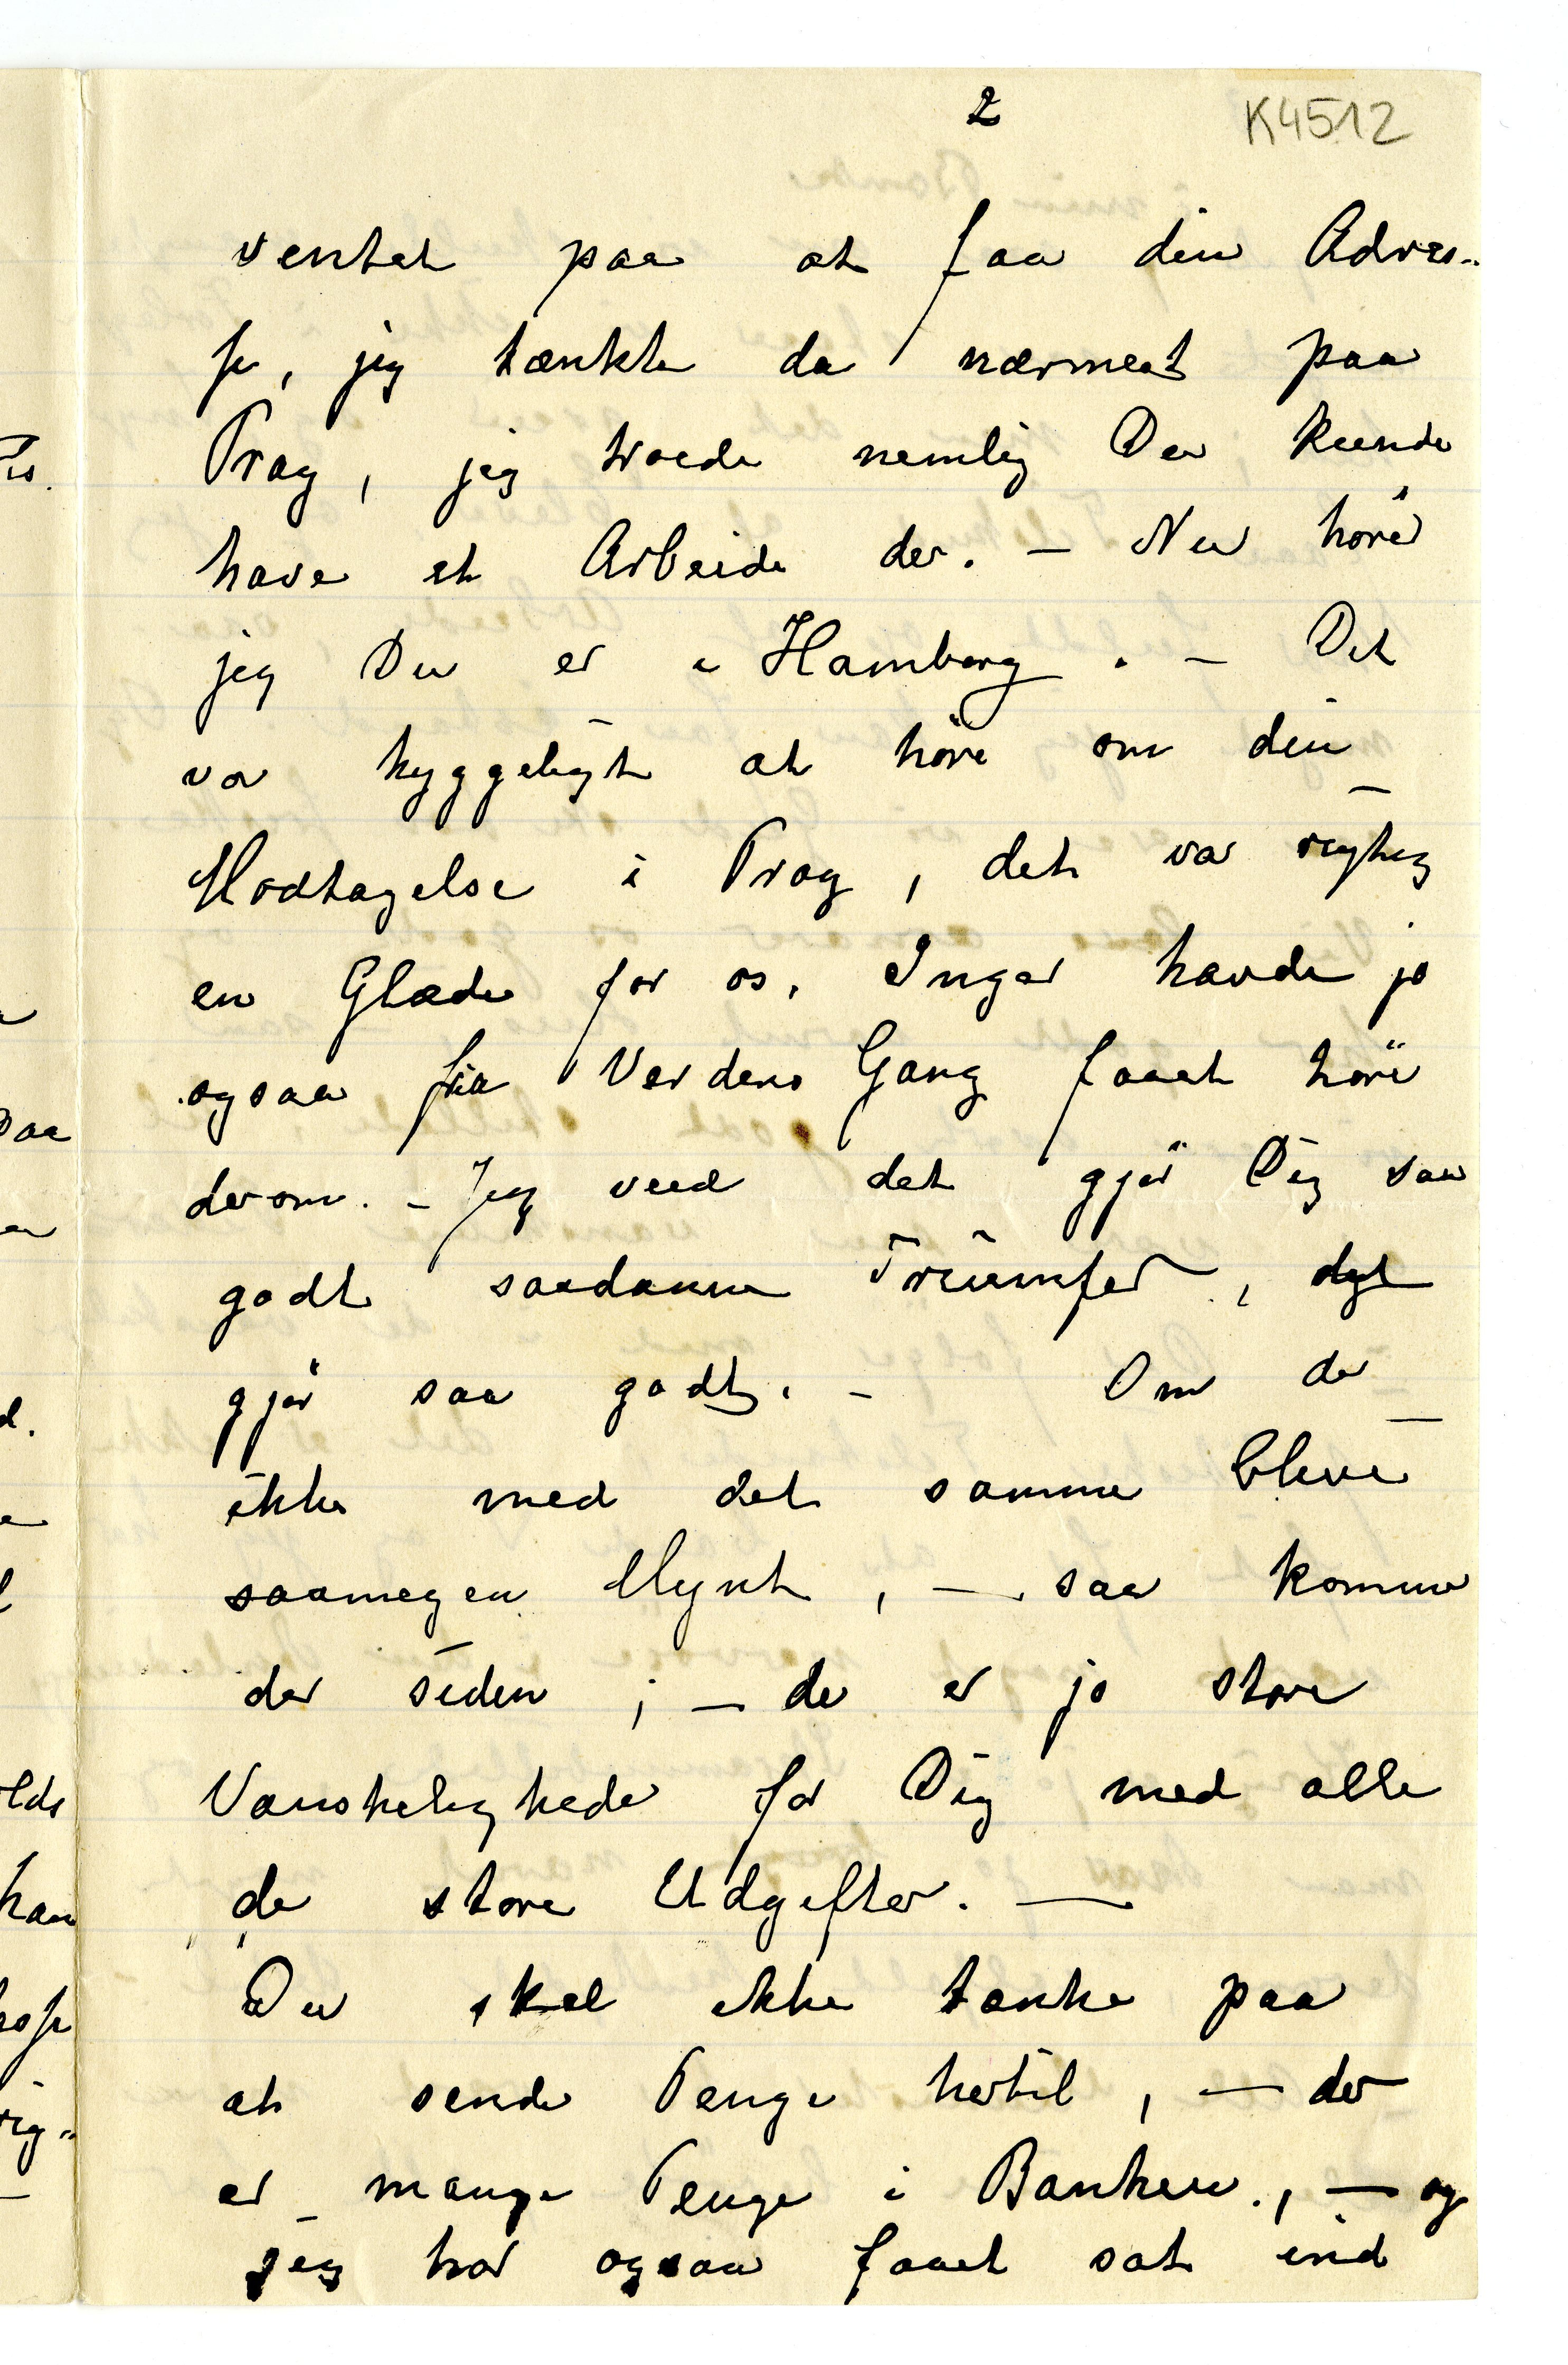 2
K4512
ventet paa at faa din Adres-
se, jeg tænkte da nærmest paa
Prag, jeg troede nemlig Du kunde
have et Arbeide der. – Nu hører
jeg Du er i Hamborg. – Det
var hyggeligt at höre om din
Modtagelse i Prag, det var rigtig
en Glæde for os, Inger havde jo
ogsaa fra Verdens Gang faaet höre
derom. – Jeg veed det gjör Dig saa
godt saadanne Triumfer, det
gjör saa godt. – Om der
ikke med det samme bliver
saamegen Mynt, – saa kommer
der siden; – der er jo store
Vanskeligheder for Dig med alle
de store Udgifter. –
Du skal ikke tænke paa
at sende Penge hertil, – der
er mange Penge i Banken., – og
jeg har ogsaa faaet sat ind